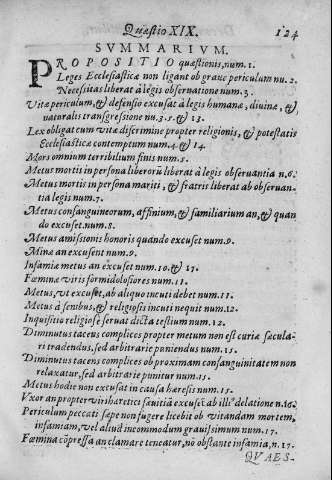 Quæstio XIX.
124
SVMMARIVM.
PROPOSITIO quæstionis, num.1.
Leges Ecclesiasticæ non ligant ob graue periculum nu.2.
Necessitas liberat à legis obseruatione num.3.
Vitæ periculum, & defensio excusat à legis humanæ, diuinæ, &
naturalis transgressione nu.3.5. & 13.
Lex obligat cum vitæ discrimine propter religionis, & potestatis
Ecclesiasticæ contemptum num.4. & 14.
Mors omnium terribilium finis num.5.
Metus mortis in persona liberorū liberat à legis obseruantia n.6.
Metus mortis in persona mariti, & fratris liberat ab obseruan-
tia legis num.7.
Metus consanguineorum, affinium, & familiarium an, & quan
do excuset num.8.
Metus amissionis honoris quando excuset num.9.
Minæ an excusent num.9.
Infamiæ metus an excuset num.10. & 17.
Fœminæ viris formidolosiores num.11.
Metus, vt excuset, ab aliquo incuti debet num.11.
Metus à senibus, & religiosis incuti nequit num.12.
Inquisitio religiosè seruat dicta testium num.12.
Diminutus tacens complices propter metum non est curiæ sæcula-
ri tradendus, sed arbitrariè puniendus num.15.
Diminutus tacens complices ob proximam consanguinitatem non
relaxatur, sed arbitrariè punitur num.15.
Metus hodie non excusat in causa hæresis num.15.
Vxor an propter viri hæretici sæuitiā excuset ab illiꝰ delatione n.16.
Periculum peccati sæpe non fugere licebit ob vitandam mortem,
infamiam, vel aliud incommodum grauissimum num.17.
Fœmina cōpressa an clamare teneatur, nō obstante infamia, n.17.
QVAES-